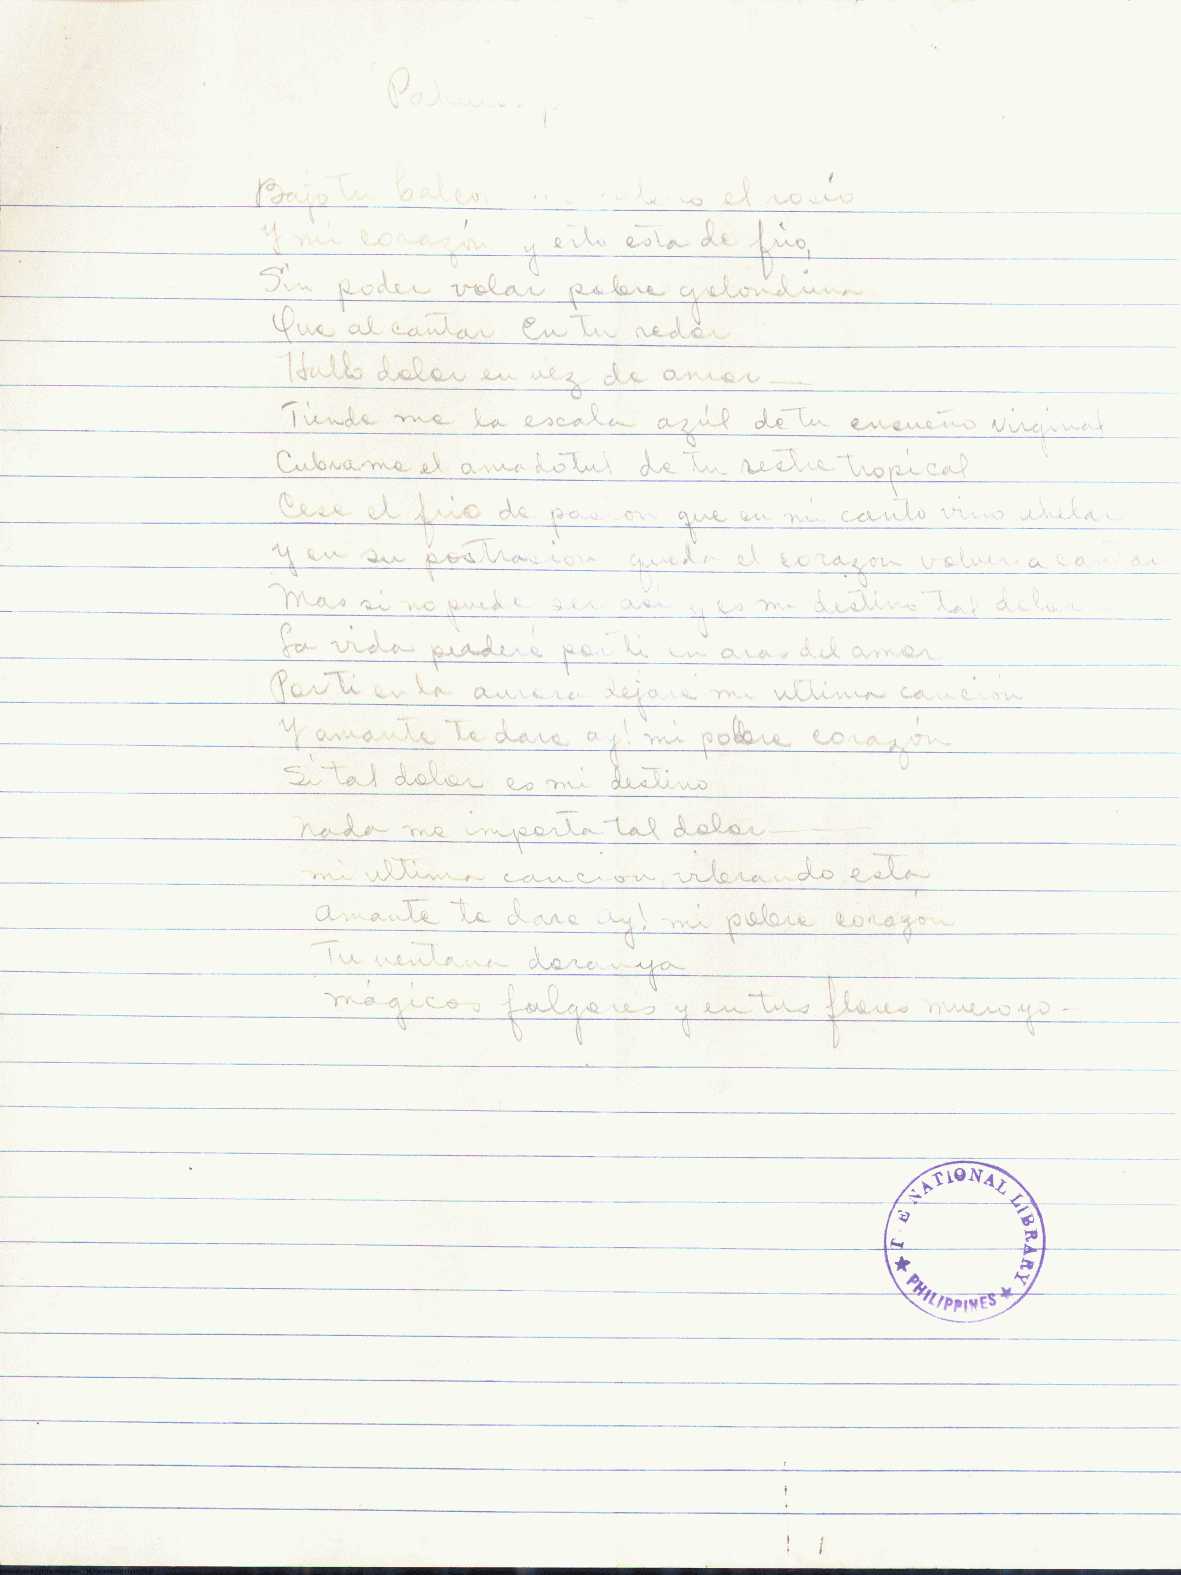 Bajo tu balcon el rocio
Y mi corazón y erto esta de frio,
Sin poder volar pobre golondrina
Que al cantar En tu redor
Hallo dolor en vez de amor —
Tiende me la escala azúl de tu ensueño virginal
Cubrame el de tu tropical
Cese el frio de pasion que en mi canto vino
Y en su postracion queda el corazon volver a
Mas si no puede ser asi y es mi destino tal dolor
La vida perderé por ti en aras del amor
Por ti en la aurora dejaré mi ultima canción
Y amante te dare ay! mi pobre corazón
Si tal dolor es mi destino
Nada me importa tal dolor —
mi ultima cancion vibrando esta
Amante te dare ay! mi pobre corazón
Tu ventana doran ya
mágicos fulgores y en tus flores muero yo -
T E NATIONAL LIBRARY
★ PHILIPPINES ★